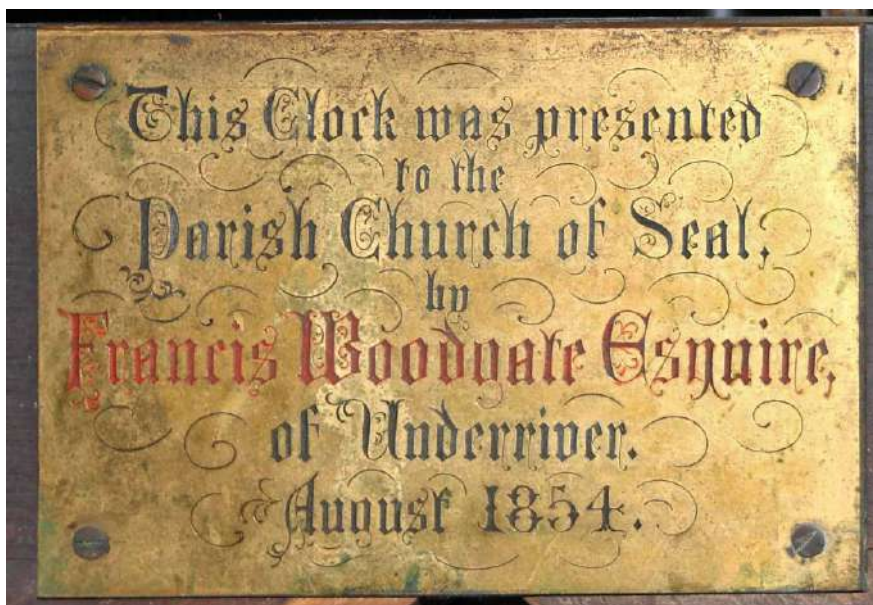 This Clock was presented
to the
Parish Church of Seal,
by
Francis Woodgate Esquire,
of Underriver.
August 1854.